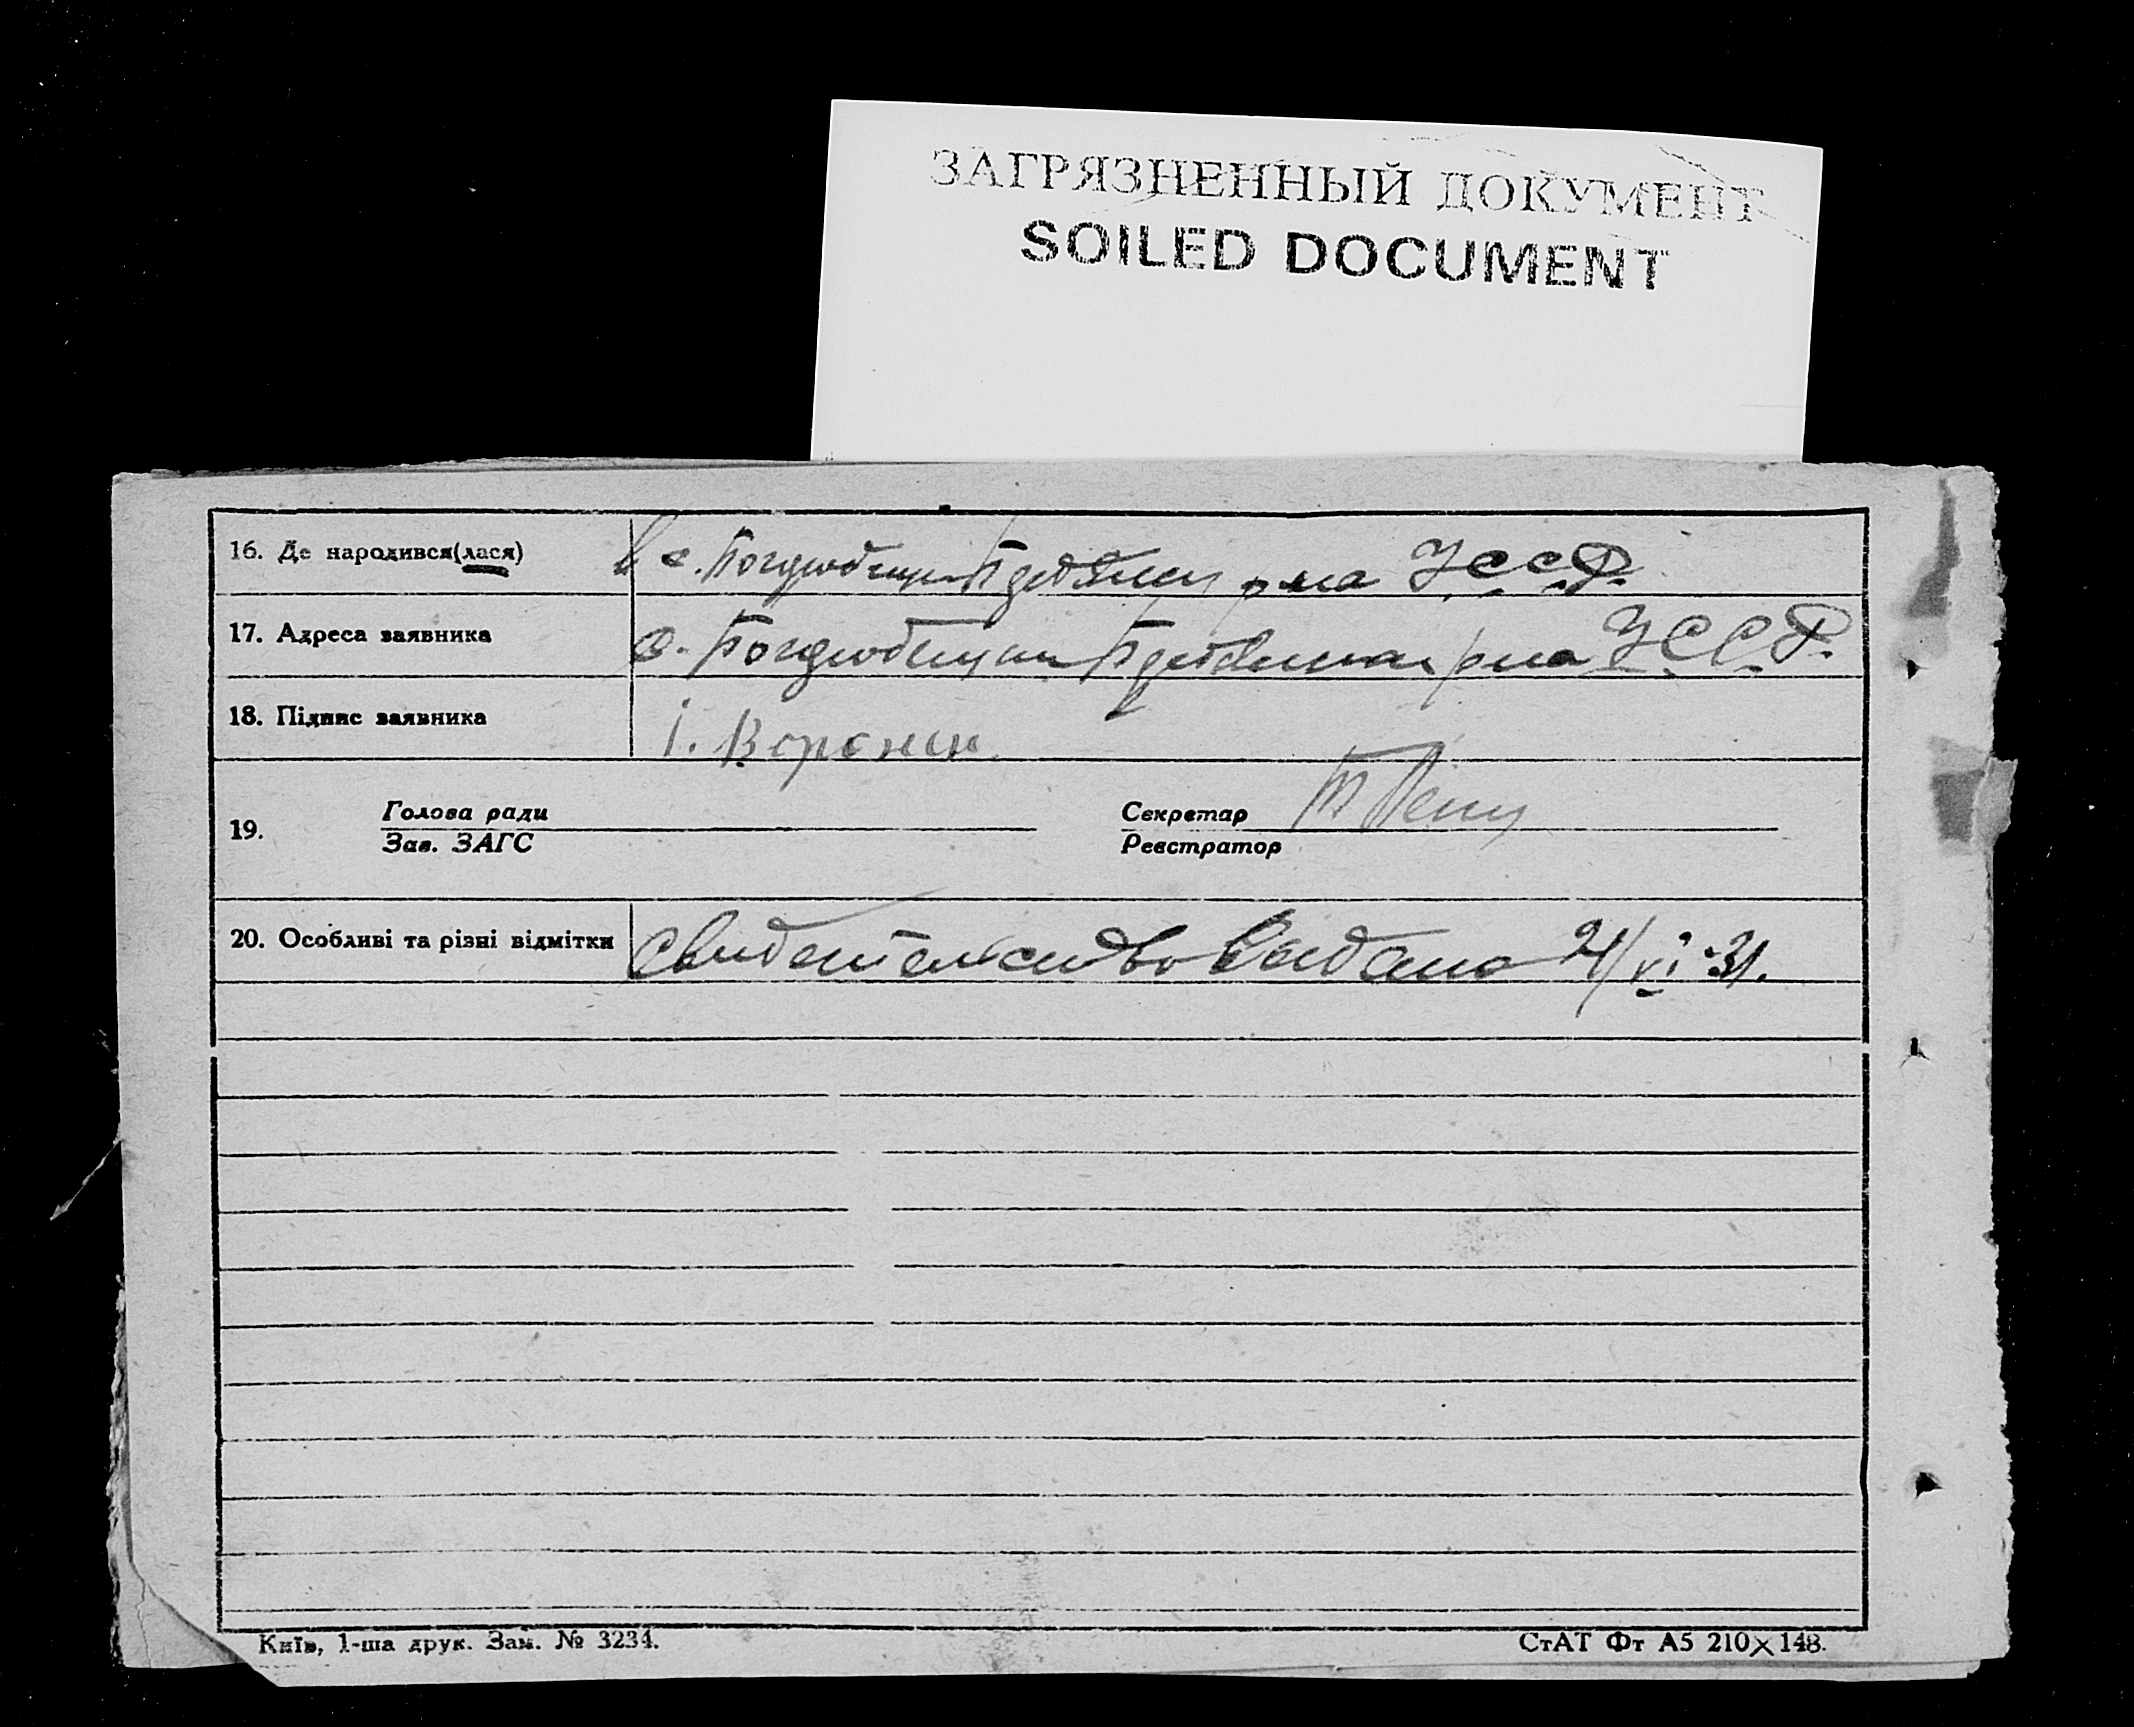 ЗАГРЯЗНЕННЫЙ ДОКУМЕНТ
SOILED DOCUMENT
16. Де народився(лася)
в с. р-на УССР.
17. Адреса заявника
с. р-на УССР.
18. Підпис заявника
І. Воронин
19.
Голова ради
Зав. ЗАГС
Секретар
Реєстратор
20. Особливі та різні відмітки
Свидетельство выдано 21/VI-31.
Київ, 1-ша друк. Зам. № 3234.
СтАТ Фт А5 210×148.